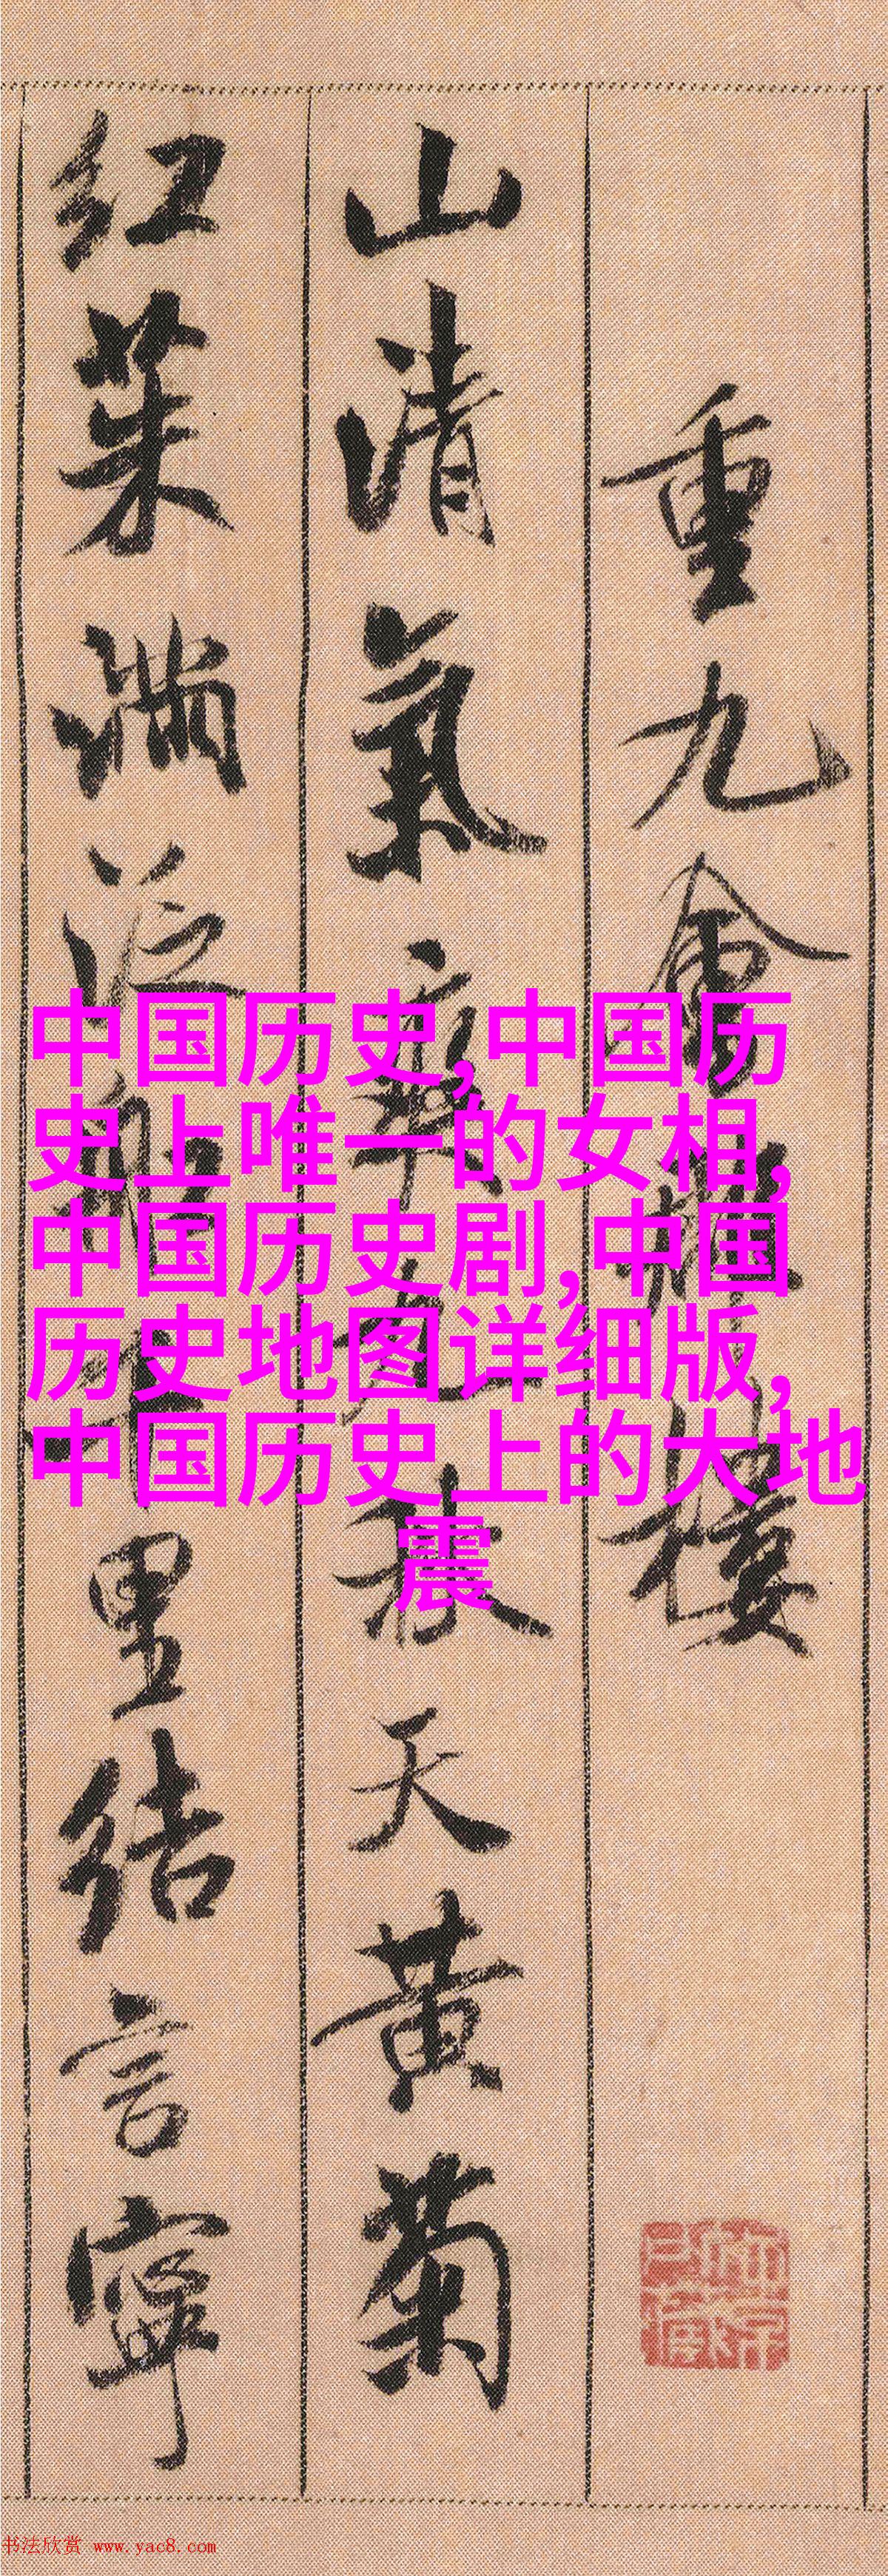 重九會郡樓
山清氣爽九秋天黃菊
紅茱滿泛船千里結言寧
中国历史,中国历
史上唯一的女相,
中国历史剧,中国
历史地图详细版,
中国历史上的大地
震
书法欣赏 www.yac8.com